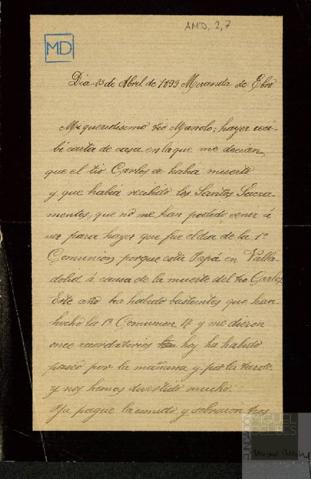 AMD. 2,7
MD
Dia 13 de Abril de 1899 Miranda de Ebro
Mi queridisimo tio Manolo; hayer reci-
bi carta de casa en la que me decian
que el tio Carlos se habia muerto
y que habia recibido los Santos Sacra-
mentos, que no me han podido venir á
ver para hayer que fue el dia de la 1ª
Comunion porque está Papá en Valla-
dolid á causa de la muerte del tio Carlos
Este año ha habido bastantes que han
hecho la 1ª Comunion 17 y me dieron
once recordatorios hoy ha habido
paseo por la mañana y por la tarde
y nos hemos divertido mucho.
Ya pague la comida y sobraron tres